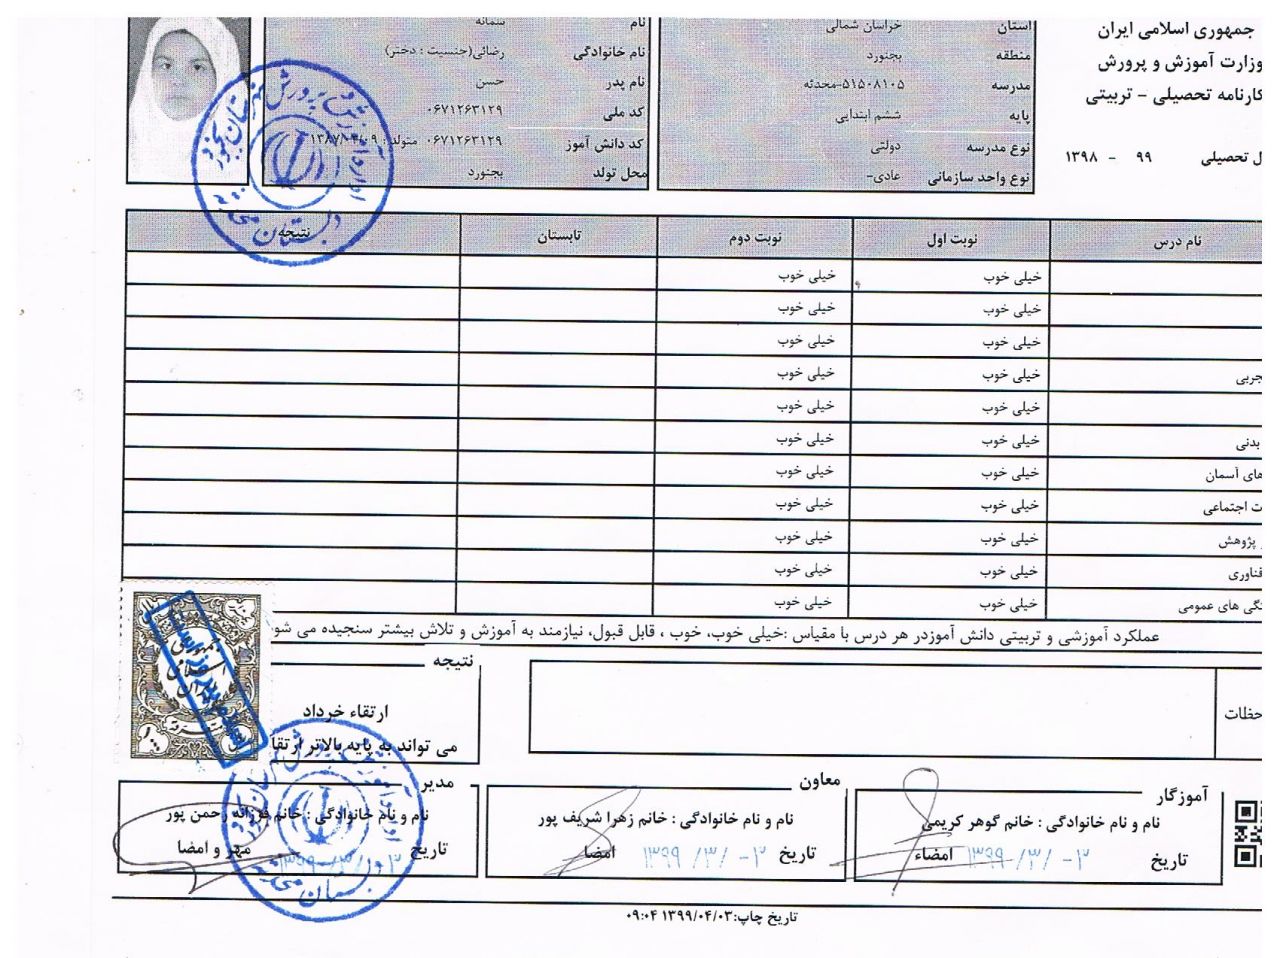 جمهوری اسلامی ایران
وزارت آموزش و پرورش
کارنامه تحصیلی - تربیتی
ل تحصیلی ۹۹ - ۱۳۹۸
استان خراسان شمالی
منطقه بجنورد
مدرسه ۵۱۵۰۸۱۰۵-محدثه
پایه ششم ابتدایی
نوع مدرسه دولتی
نوع واحد سازمانی عادی-
نام سمانه
نام خانوادگی رضائی(جنسیت : دختر)
نام پدر حسن
کد ملی ۰۶۷۱۲۶۳۱۲۹
کد دانش آموز ۰۶۷۱۲۶۳۱۲۹ متولد :
محل تولد بجنورد
نام درس نوبت اول نوبت دوم تابستان نتیجه
خیلی خوب خیلی خوب
خیلی خوب خیلی خوب
خیلی خوب خیلی خوب
جربی خیلی خوب خیلی خوب
خیلی خوب خیلی خوب
بدنی خیلی خوب خیلی خوب
های آسمان خیلی خوب خیلی خوب
ت اجتماعی خیلی خوب خیلی خوب
پژوهش خیلی خوب خیلی خوب
فناوری خیلی خوب خیلی خوب
گی های عمومی خیلی خوب خیلی خوب
عملکرد آموزشی و تربیتی دانش آموزدر هر درس با مقیاس :خیلی خوب، خوب ، قابل قبول، نیازمند به آموزش و تلاش بیشتر سنجیده می شو
حظات
نتیجه
ارتقاء خرداد
می تواند به پایه بالاتر ارتقا
جمهوری
اسلامی
ایران
آموزگار
نام و نام خانوادگی : خانم گوهر کریمی
تاریخ ۱۳۹۹/۳/-۲ امضاء
معاون
نام و نام خانوادگی : خانم زهرا شریف پور
تاریخ ۱۳۹۹/۳/-۲ امضا
مدیر
نام و نام خانوادگی : خانم فرزانه رحمن پور
تاریخ مهر و امضا
اداره آموزش و پرورش شهرستان بجنورد
دبستان محدثه
تاریخ چاپ:۱۳۹۹/۰۴/۰۳ ۰۹:۰۴